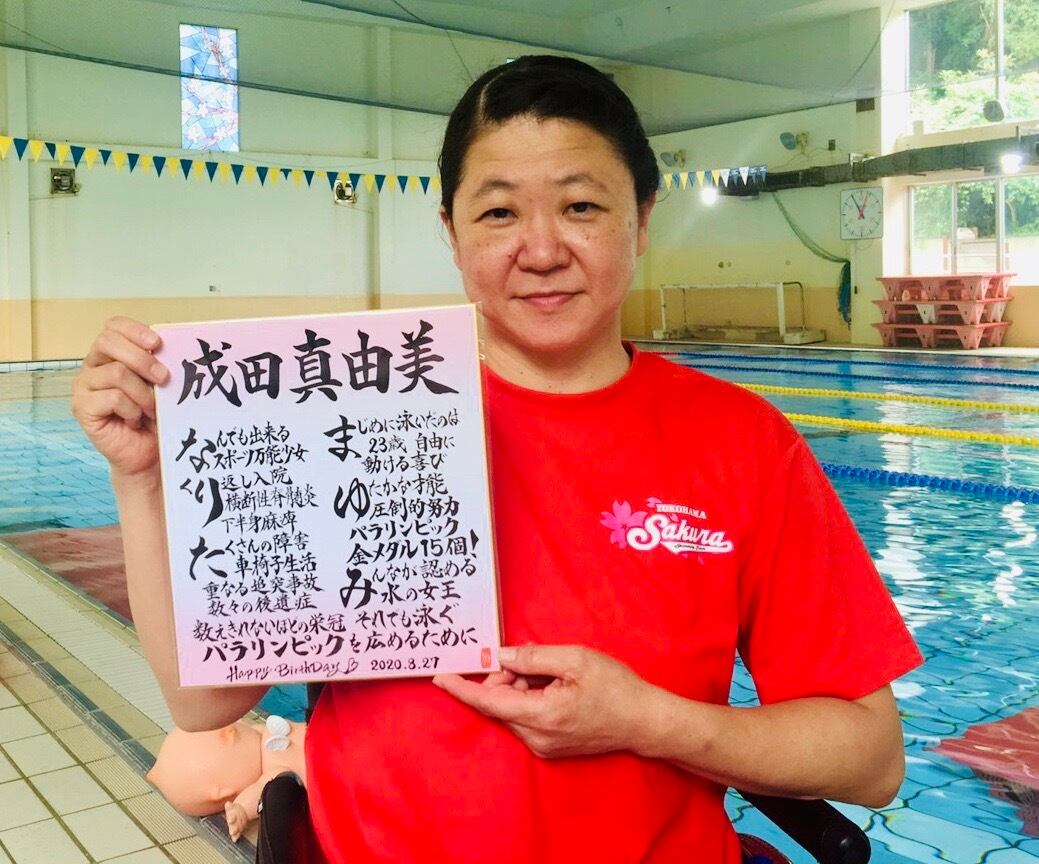 成田真由美
なんでも出来る
スポーツ万能少女
くり返し入院
横断性脊髄炎
下半身麻痺
たくさんの障害
車椅子生活
重なる追突事故
数々の後遺症
まじめに泳いだのは
23歳 自由に
動ける喜び
ゆたかな才能
圧倒的努力
パラリンピック
金メダル15個!
みんなが認める
水の女王
数えきれないほどの栄冠 それでも泳ぐ
パラリンピックを広めるために
Happy BirthDay 2020.8.27
YOKOHAMA
Sakura